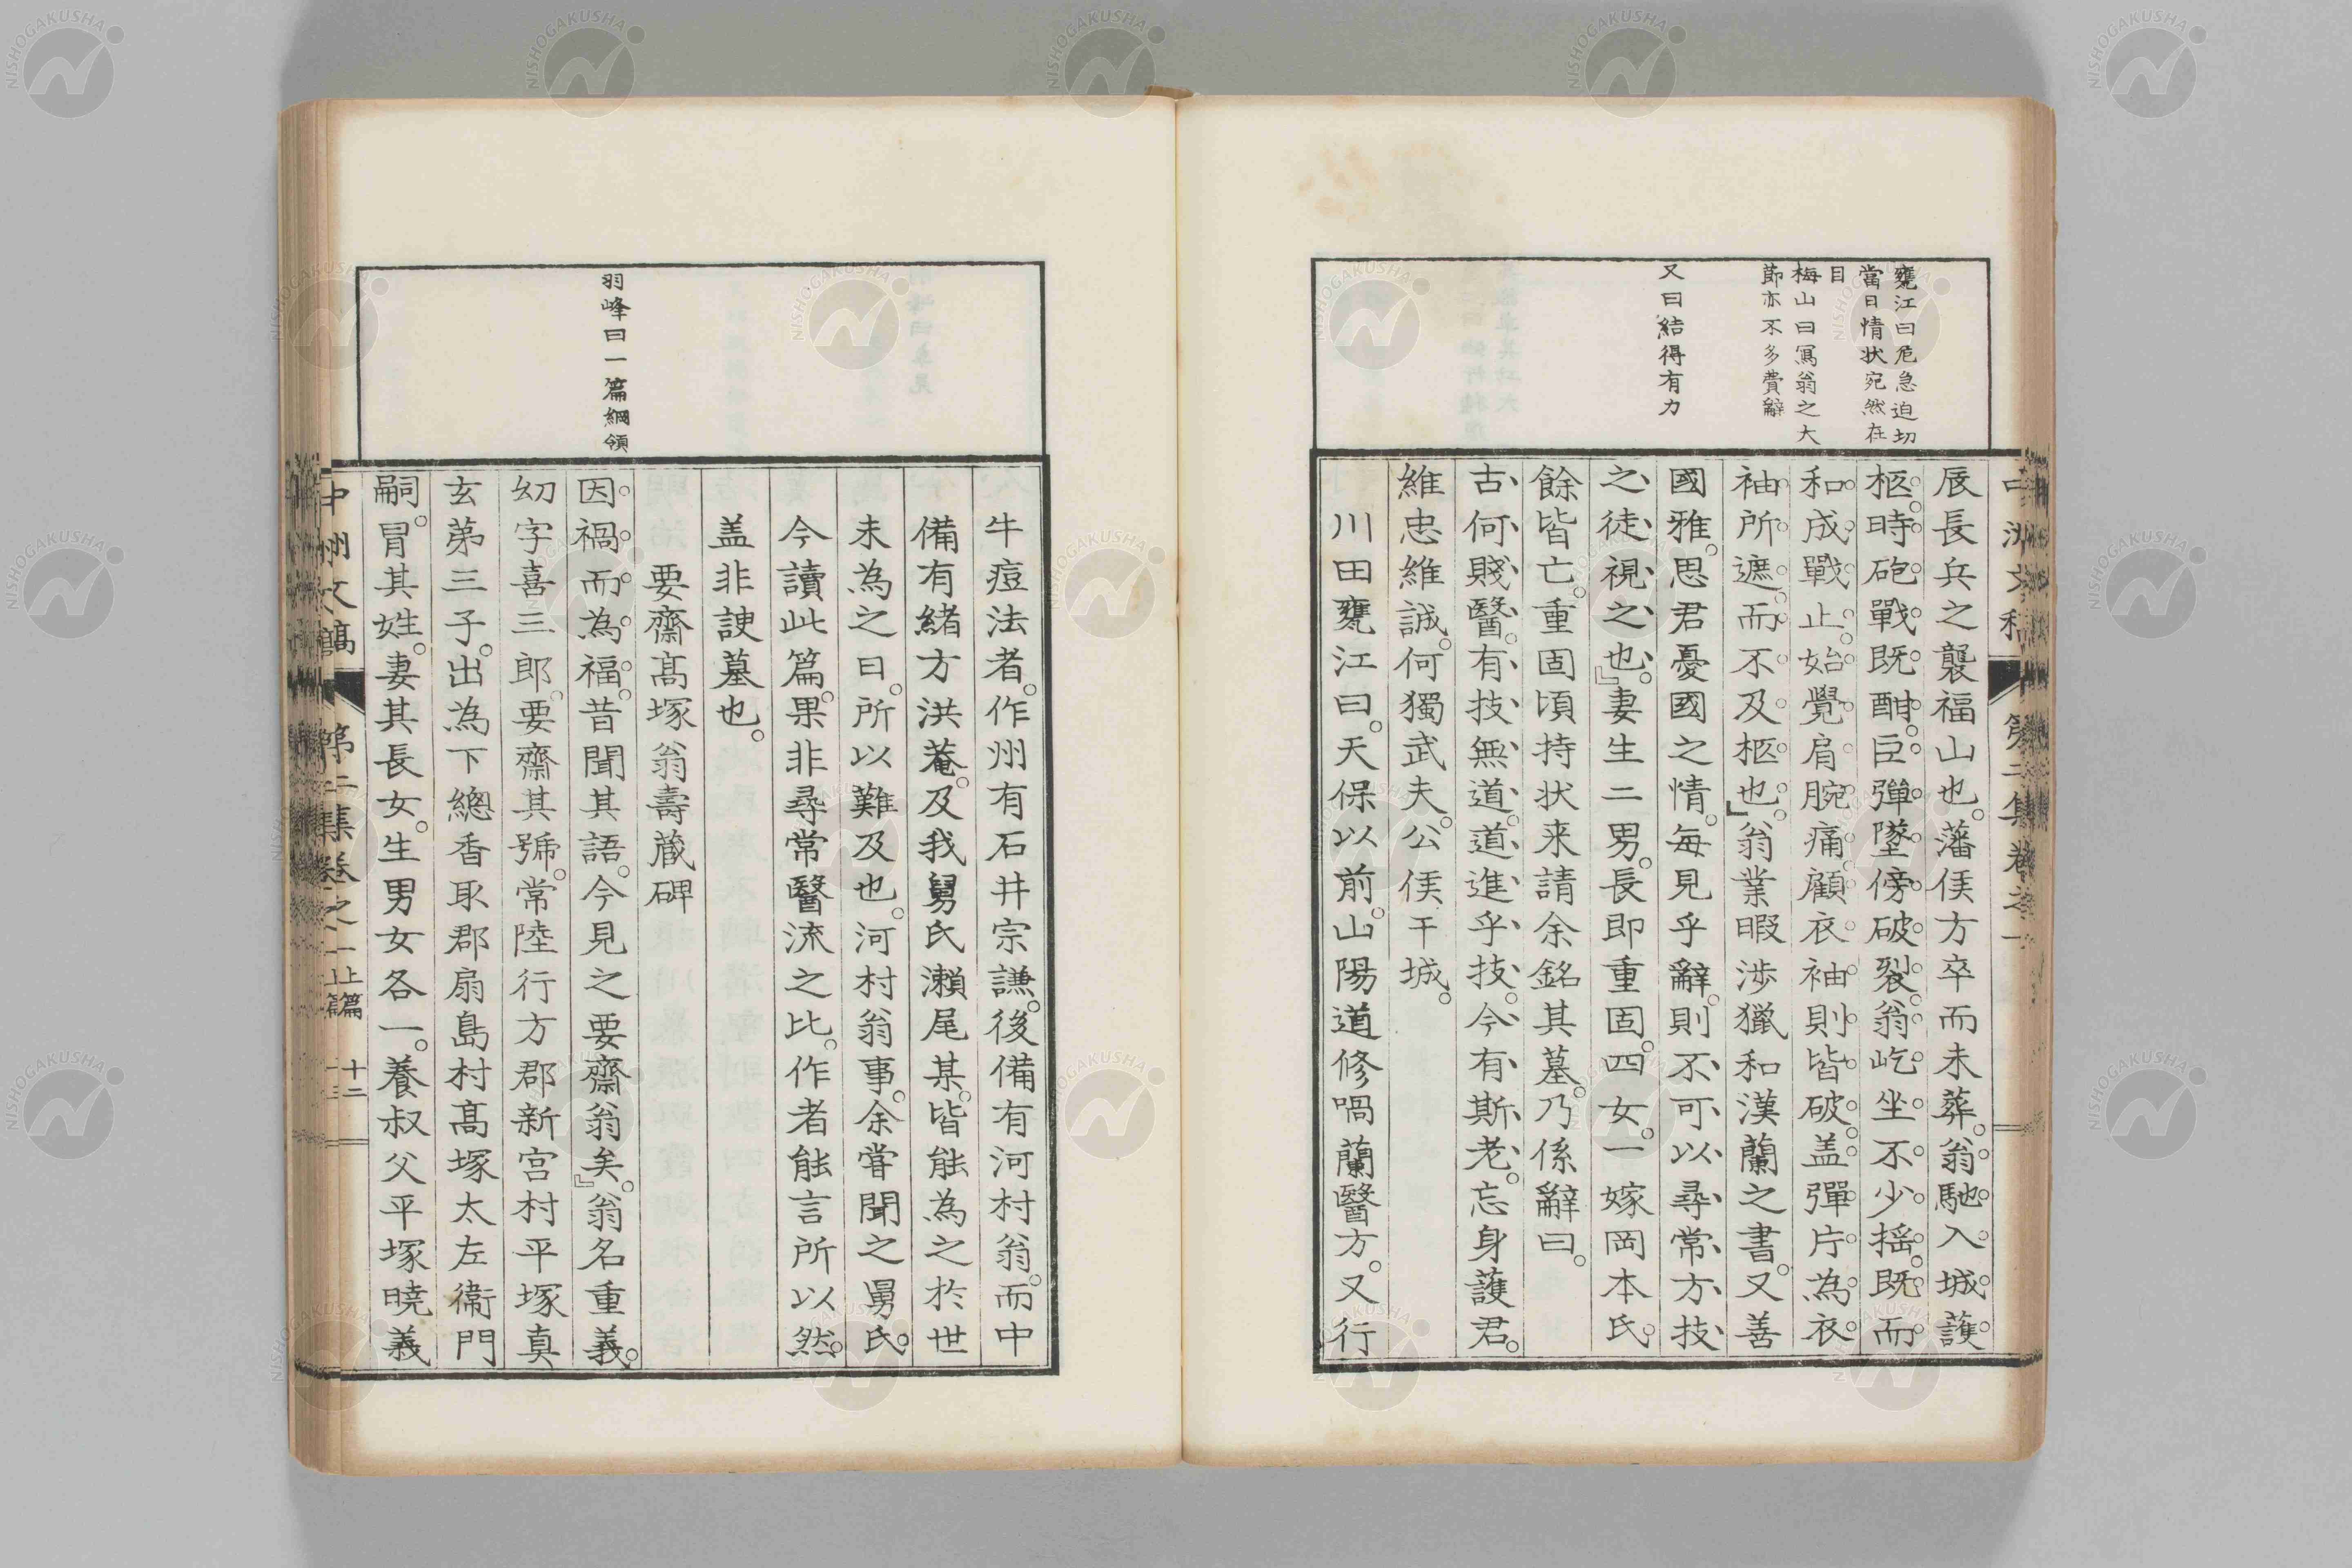 甕江曰危急迫切
當日情状宛然在
目
梅山曰寫翁之大
節亦不多費辭
又曰結得有力
辰長兵之襲福山也。藩侯方卒而未葬。翁馳入城護
柩。時砲戰既酣。巨彈墜傍破裂。翁屹坐不少揺。既而
和成戰止。始覺肩腕痛。顧衣袖則皆破。盖彈片為衣
袖所遮。而不及柩也。』翁業暇渉獵和漢蘭之書。又善
國雅。思君憂國之情。每見乎辭。則不可以尋常方技
之徒視之也。』妻生二男。長即重固。四女。一嫁岡本氏。
餘皆亡。重固頃持状来請余銘其墓。乃係辭曰。
古何賤醫。有技無道。道進乎技。今有斯老。忘身護君。
維忠維誠。何獨武夫。公侯干城。
川田甕江曰。天保以前。山陽道修喎蘭醫方。又行
牛痘法者。作州有石井宗謙。後備有河村翁。而中
備有緒方洪菴。及我舅氏瀨尾某。皆能為之於世
未為之日。所以難及也。河村翁事。余嘗聞之舅氏。
今讀此篇。果非尋常醫流之比。作者能言所以然。
盖非諛墓也。
要齋髙塚翁壽蔵碑
羽峰曰一篇綱領
因禍而為福。昔聞其語。今見之要齋翁矣。』翁名重義。
幼字喜三郎。要齋其號。常陸行方郡新宮村平塚真
玄弟三子。出為下總香取郡扇島村髙塚太左衞門
嗣。冒其姓。妻其長女。生男女各一。養叔父平塚曉義
中洲文稿
第二集卷之一
上篇
十二